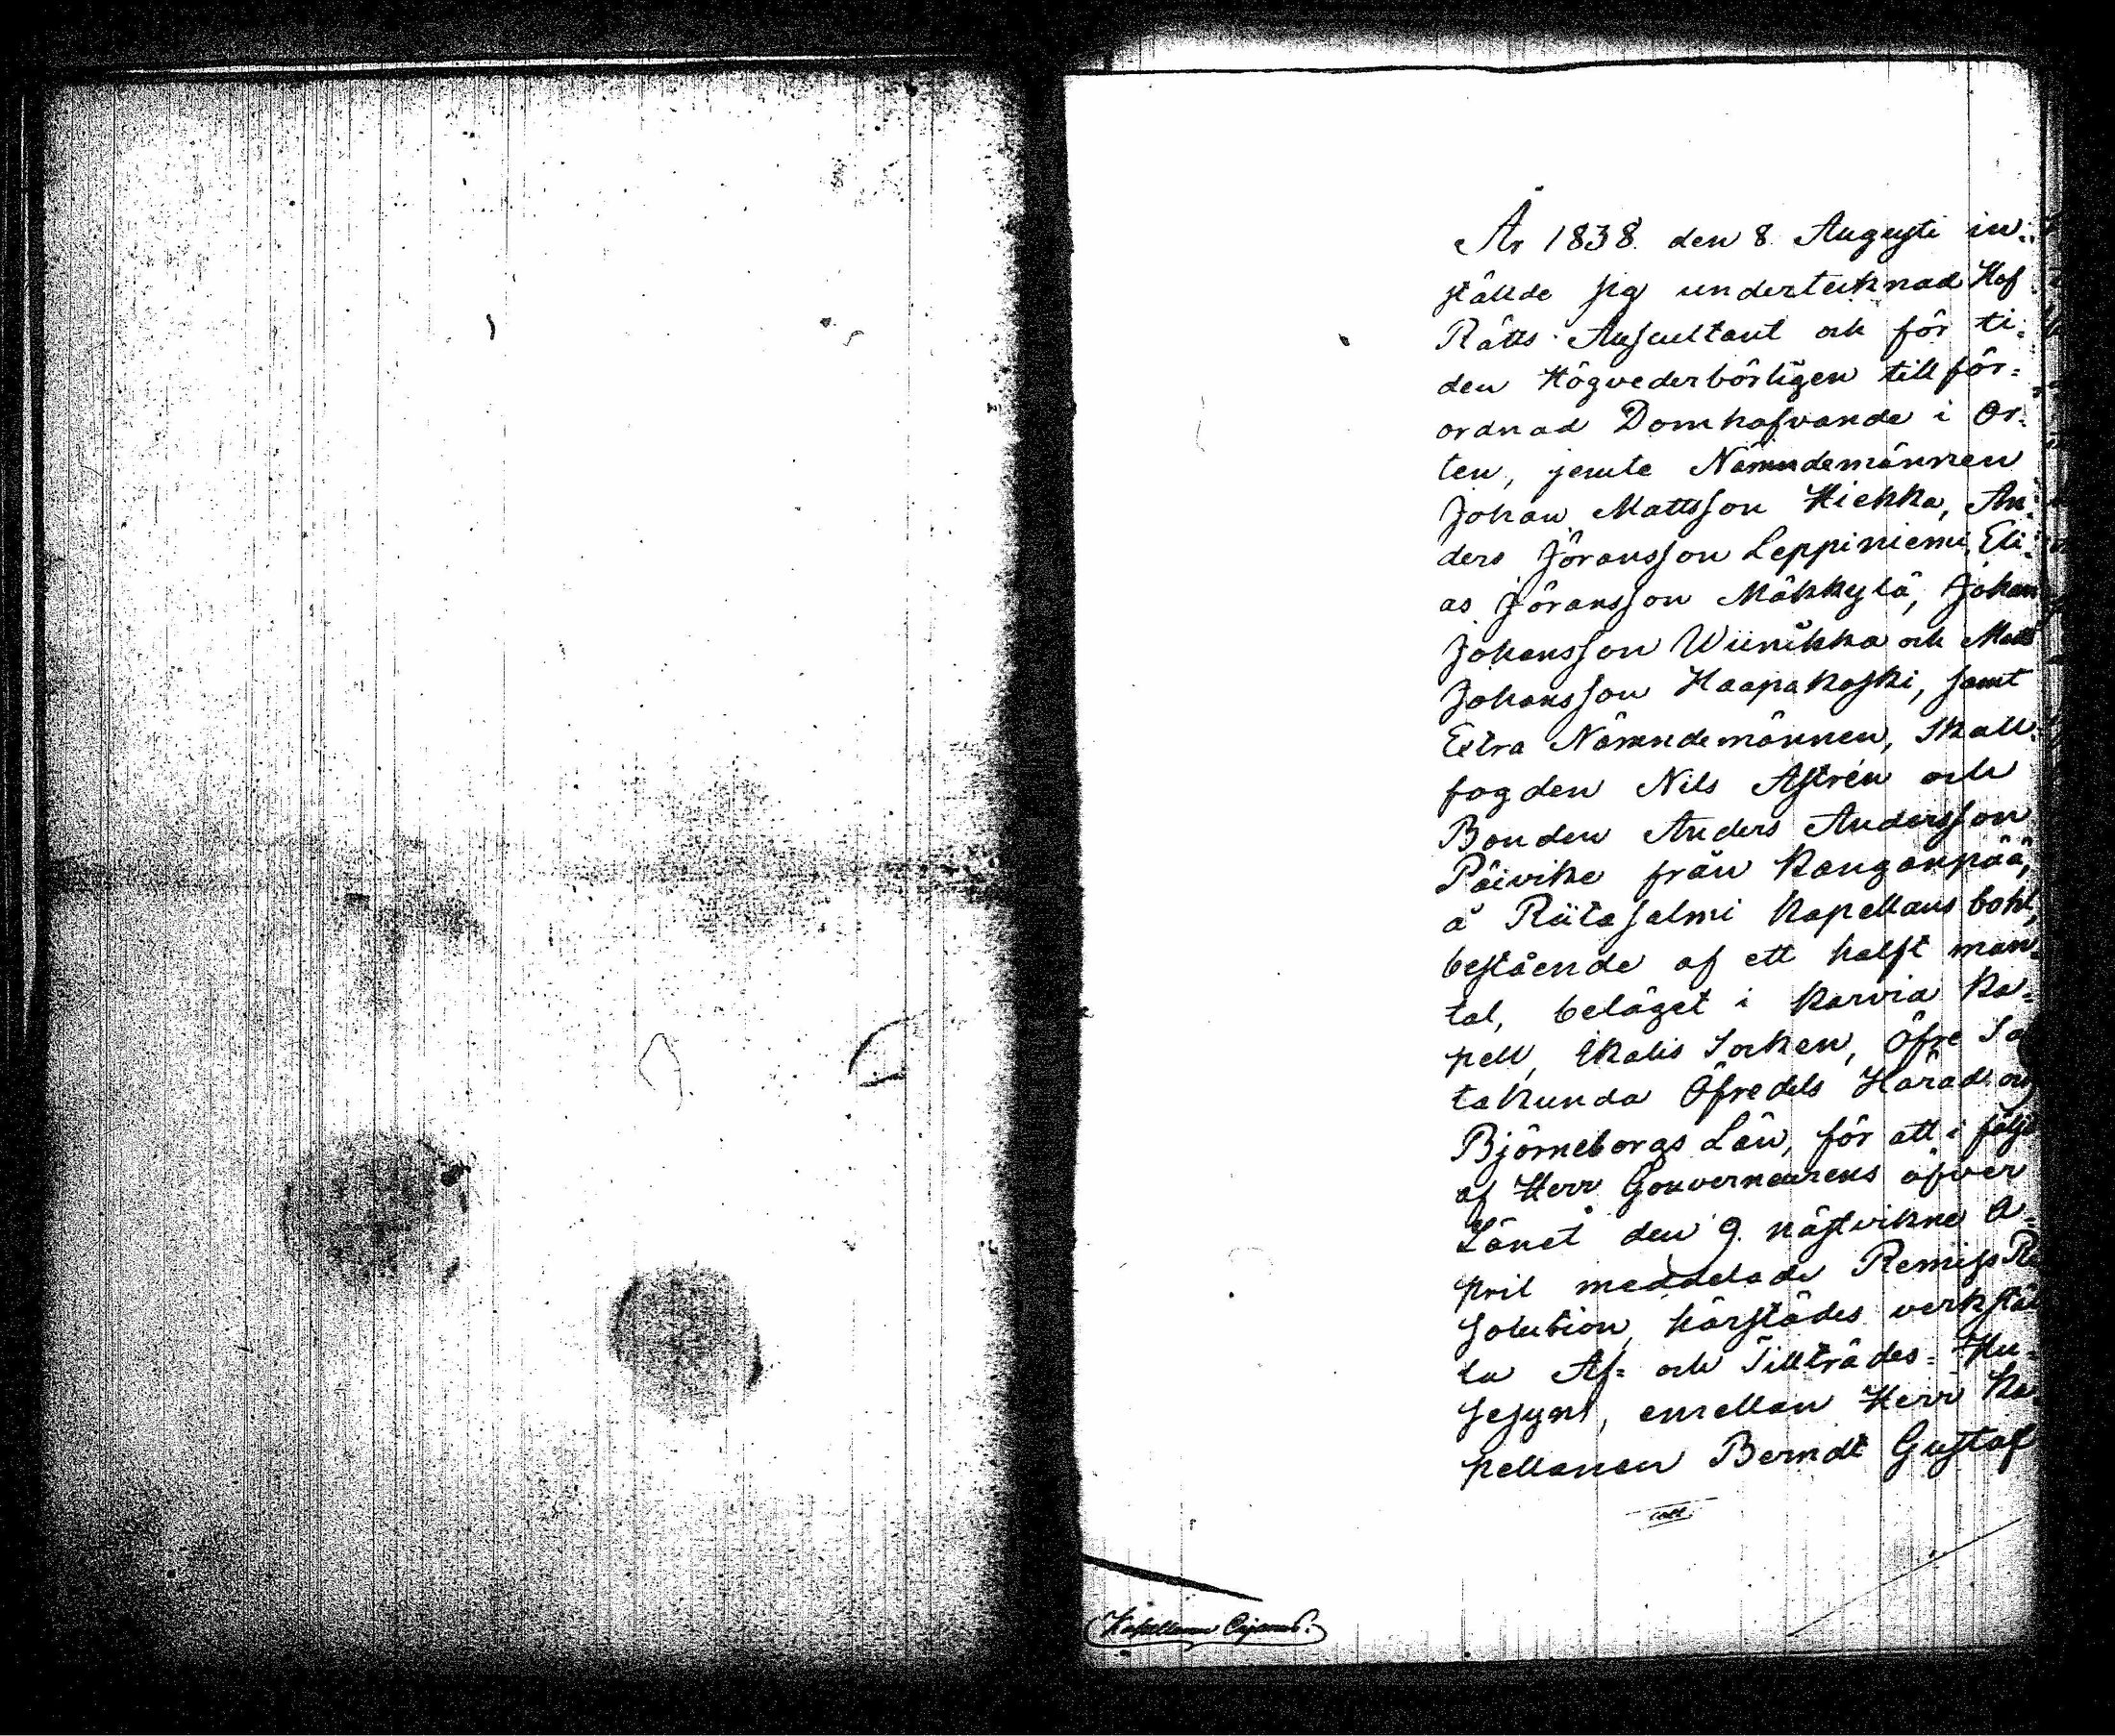 År 1838. den 8 Augusti in-
ställde sig undertecknad Hof
Rätts Auscultant och för ti-
den Högvederbörligen tillför-
ordnad Domhafvande i Or-
ten, jemte Nämndemännen
Johan Mattsson Hiekka, An-
ders Jöransson Leppiniemi, Eli-
as Jöransson Mäkkylä, Johan
Johansson Wiinikka och Matts
Johansson Haapakoski, samt
Extra Nämndemännen, Skall-
fogden Nils Astrén och
Bonden Anders Andersson
Päivike från Kanganpää,
å Riitasalmi Kapellans bohl,
bestående af ett halft man-
tal, beläget i Karvia Ka-
pell, Ikalis Socken, Öfre Sa
takunda Öfredels Härad och
Björneborgs Län, för att i följd
af Herr Gouverneurens öfver
Länet den 9. nästvikne A-
pril meddelade Remiss Re
solution, härstädes verkstäl
la Af- och Tillträdes- Hu-
sesyn, emellan Herr Ka-
pellanen Berndt Gustaf
coll.
Kapellanen